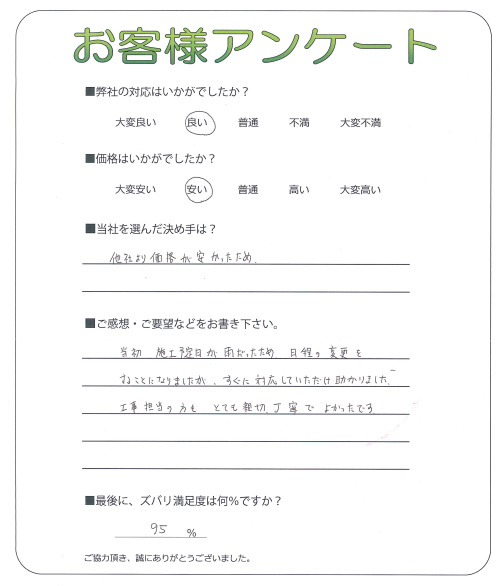 お客様アンケート
■弊社の対応はいかがでしたか？
大変良い 良い 普通 不満 大変不満
■価格はいかがでしたか？
大変安い 安い 普通 高い 大変高い
■当社を選んだ決め手は？
他社より価格が安かったため。
■ご感想・ご要望などをお書き下さい。
当初 施工予定日が雨だったため 日程の変更を
することになりましたが、すぐに対応していただけ助かりました。
工事担当の方も とても親切、丁寧で よかったです
■最後に、ズバリ満足度は何%ですか？
95 %
ご協力頂き、誠にありがとうございました。